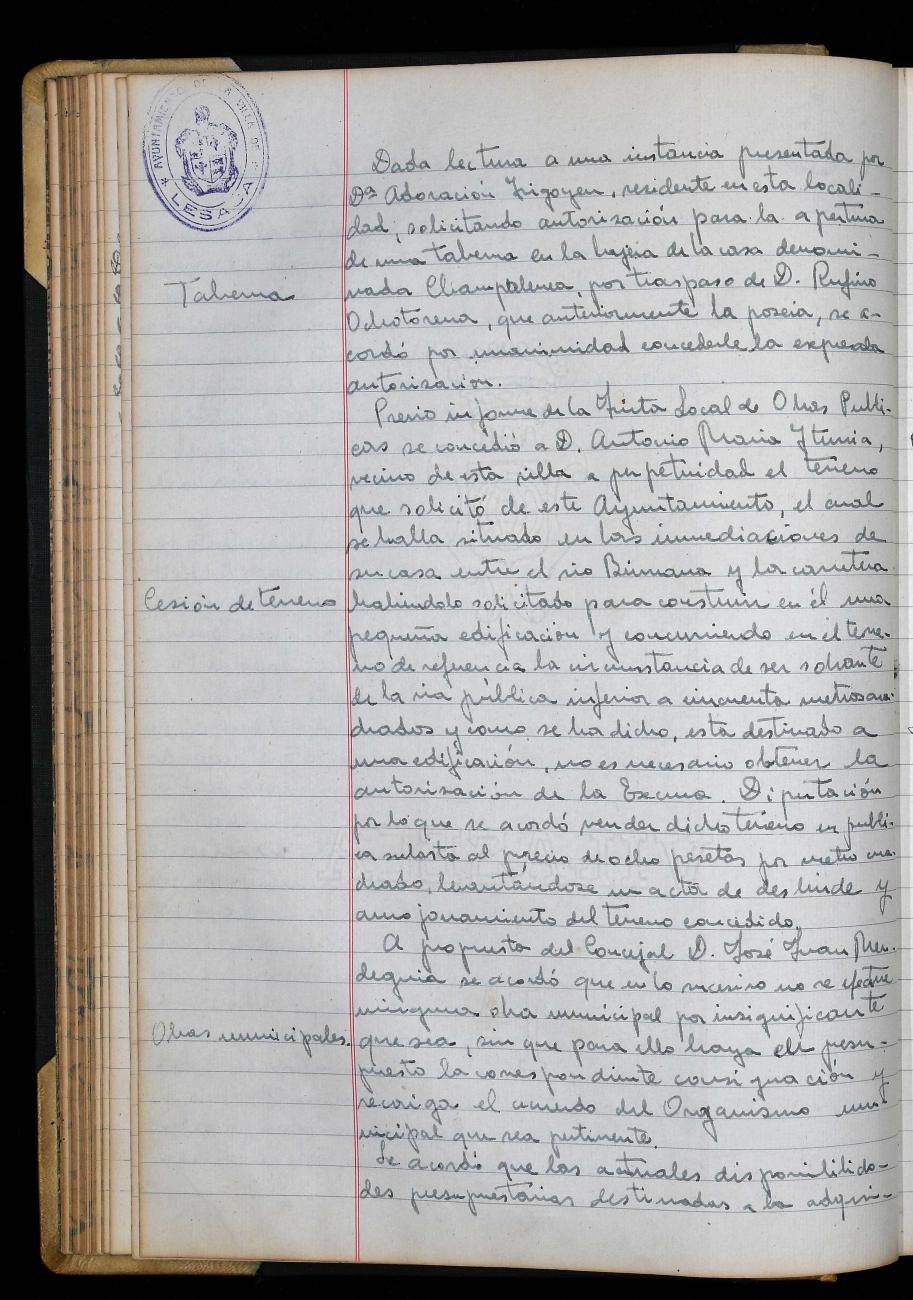 AYUNTAMIENTO DE LA VILLA DE
LESACA
Dada lectura a una instancia presentada por
Dª Adoración Irigoyen, residente en esta locali-
dad, solicitando autorización para la apertura
de una taberna en la bajera de la casa denomi-
Taberna
nada Champalenea, por traspaso de D. Rufino
Ochotorena, que anteriormente la poseia, se a-
cordó por unanimidad concederle la expresada
autorización.
Previo informe de la Junta Local de Obras Públi-
cas se concedió a D. Antonio Maria Iturria,
vecino de esta villa a perpetuidad el terreno
que solicitó de este Ayuntamiento, el cual
se halla situado en las inmediaciones de
su casa entre el rio Biurrana y la carretera
Cesión de terreno
habiendolo solicitado para construir en él una
pequeña edificación y concurriendo en el terre-
no de referencia la circunstancia de ser sobrante
de la via pública inferior a cincuenta metros cua-
drados y como se ha dicho, esta destinado a
una edificación, no es necesario obtener la
autorización de la Excma. Diputación
por lo que se acordó vender dicho terreno en públi-
ca subasta al precio de ocho pesetas por metro cua-
drado, levantándose un acta de deslinde y
amojonamiento del terreno concedido.
A propuesta del Concejal D. José Juan Men-
deguia se acordó que en lo sucesivo no se efectue
ninguna obra municipal por insignificante
Obras municipales.
que sea, sin que para ello haya en presu-
puesto la correspondiente consignación y
recaiga el acuerdo del Organismo mu-
nicipal que sea pertinente.
Se acordó que las actuales disponibilida-
des presupuestarias destinadas a la adqui-